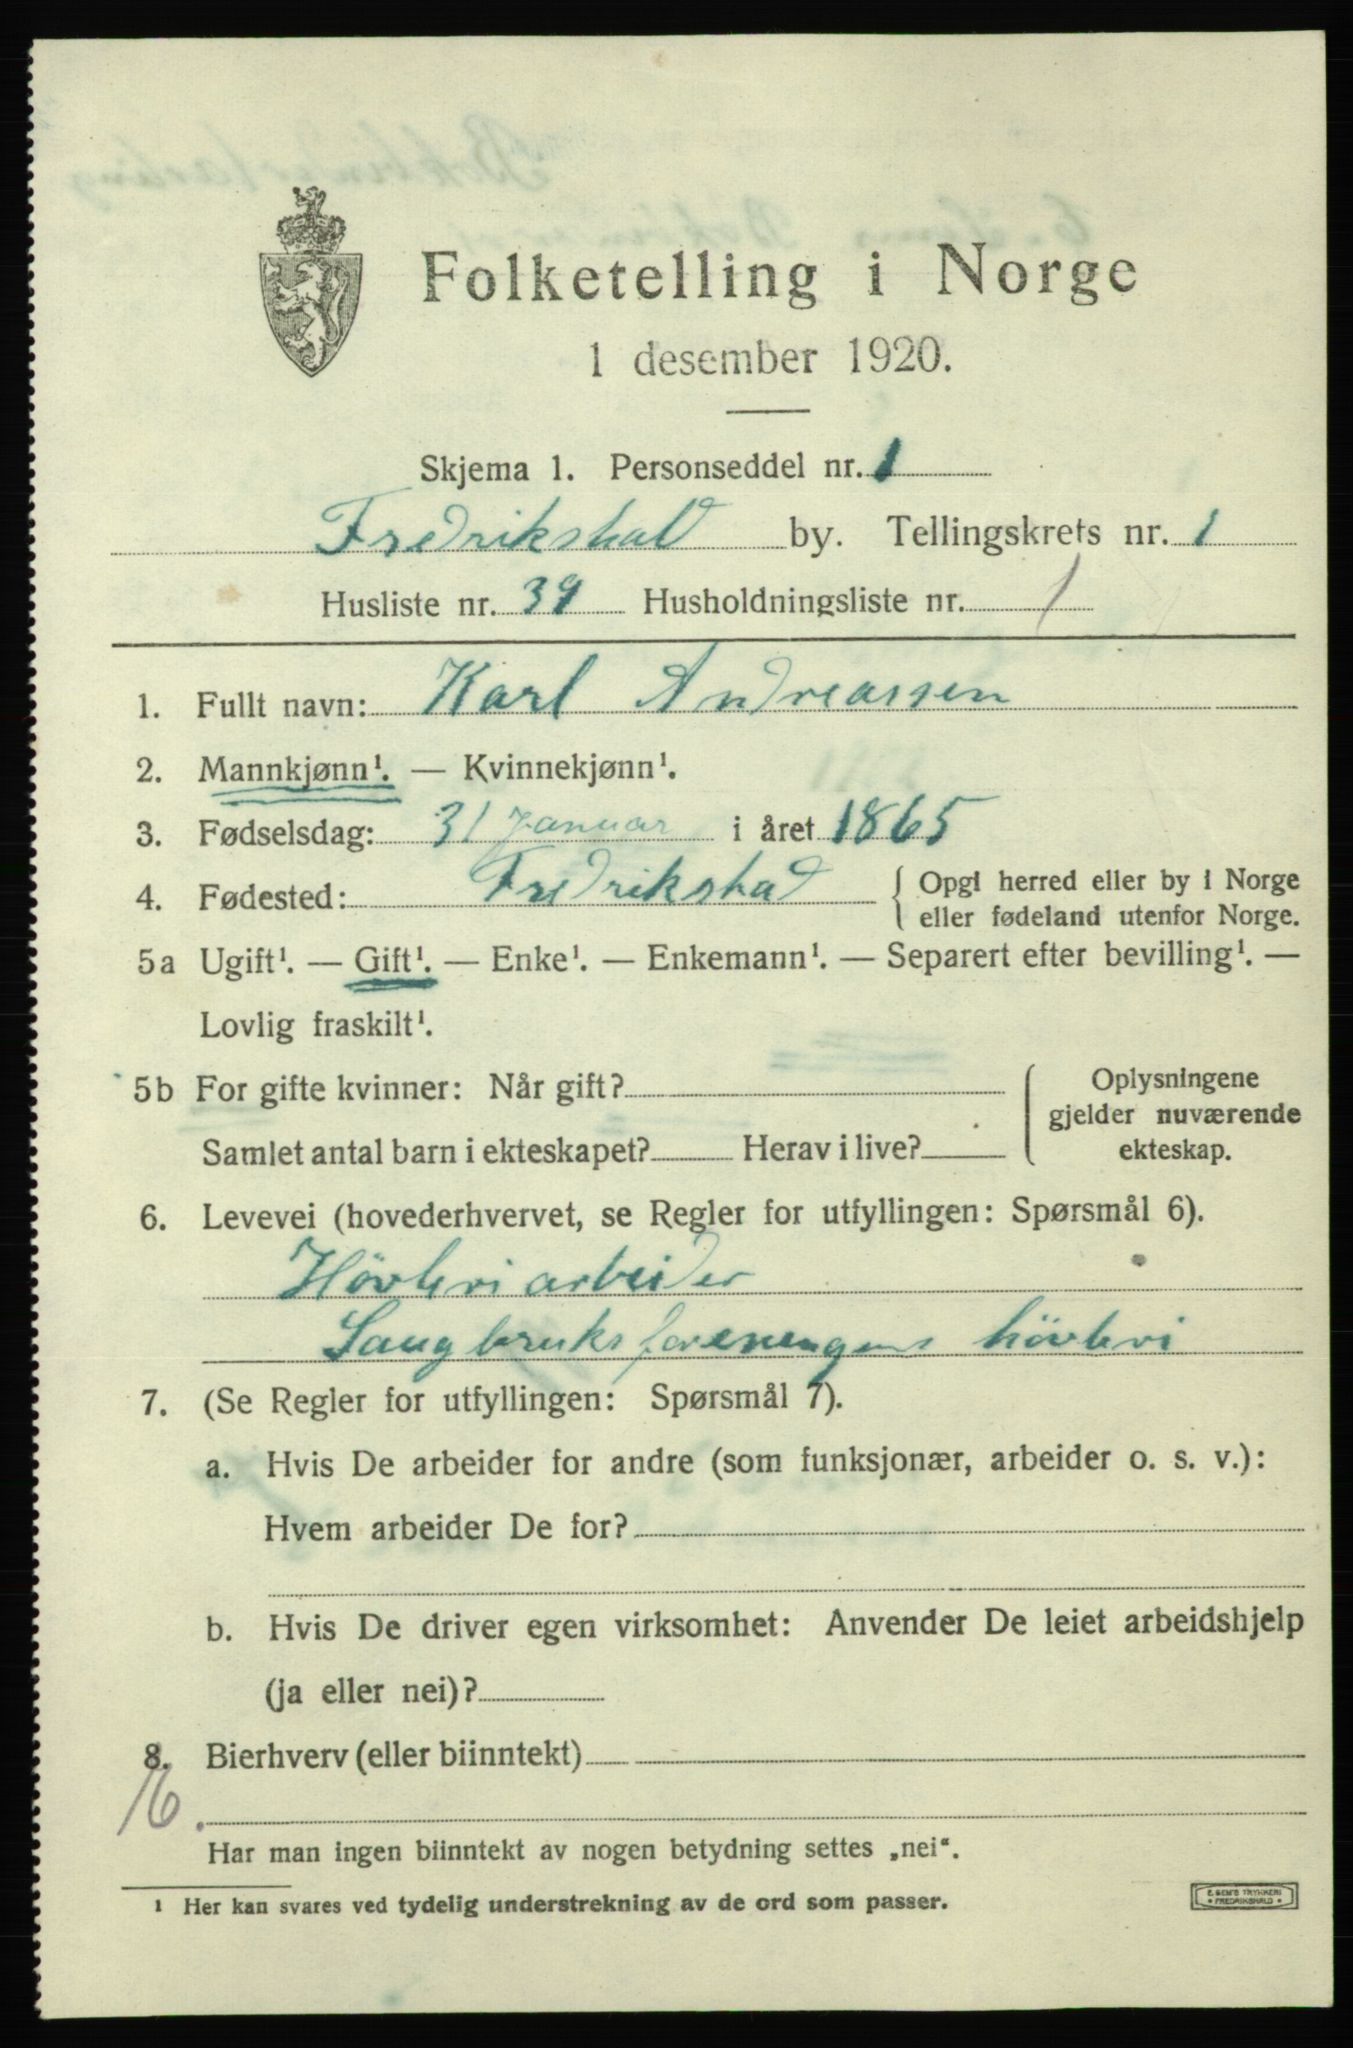 Folketelling i Norge
1 desember 1920.
Skjema 1. Personseddel nr. 1
Fredrikshald by. Tellingskrets nr. 1
Husliste nr. 39 Husholdningsliste nr. 1
1. Fullt navn: Karl Andreassen
2. Mannkjønn¹. — Kvinnekjønn¹.
3. Fødselsdag: 31 januar i året 1865
4. Fødested: Fredrikshald { Opgi herred eller by i Norge
eller fødeland utenfor Norge.
5a Ugift¹. — Gift¹. — Enke¹. — Enkemann¹. — Separert efter bevilling¹. —
Lovlig fraskilt¹.
5b For gifte kvinner: Når gift? { Oplysningene
gjelder nuværende
Samlet antal barn i ekteskapet? Herav i live? ekteskap.
6. Levevei (hovederhvervet, se Regler for utfyllingen: Spørsmål 6).
Hövleriarbeider
Saugbruksforeningens hövleri
7. (Se Regler for utfyllingen: Spørsmål 7).
a. Hvis De arbeider for andre (som funksjonær, arbeider o. s. v.):
Hvem arbeider De for?
b. Hvis De driver egen virksomhet: Anvender De leiet arbeidshjelp
(ja eller nei)?
8. Bierhverv (eller biinntekt)
Har man ingen biinntekt av nogen betydning settes „nei“.
¹ Her kan svares ved tydelig understrekning av de ord som passer.
E. SEM'S TRYKKERI
• FREDRIKSHALD •